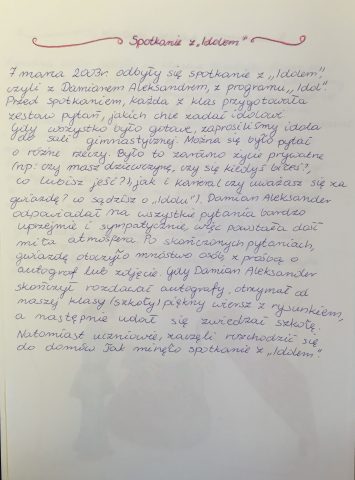 Spotkanie z „Idolem"
7 marca 2003r. odbyły się spotkanie z „Idolem",
czyli z Damianem Aleksandrem, z programu „Idol".
Przed spotkaniem, każda z klas przygotowała
zestaw pytań, jakich chce zadać idolowi
Gdy wszystko było gotowe, zaprosiliśmy idola
do sali gimnastycznej. Można się było pytać
o różne rzeczy. Było to zarówno życie prywatne
(np: czy masz dziewczynę, czy się kiedyś biłeś?,
co lubisz jeść?) jak i kariera( czy uważasz się za
gwiazdę? co sądzisz o „Idolu") Damian Aleksander
odpowiadał na wszystkie pytania bardzo
uprzejmie i sympatycznie, więc powstała dość
miła atmosfera. Po skończonych pytaniach,
gwiazdę otoczyło mnóstwo osób, z prośbą o
autograf lub zdjęcie. Gdy Damian Aleksander
skończył rozdawać autografy, otrzymał od
naszej klasy (szkoły) piękny wiersz z rysunkiem,
a następnie udał się zwiedzać szkołę.
Natomiast uczniowie, zaczęli rozchodzić się
do domów. Tak minęło spotkanie z „Idolem"